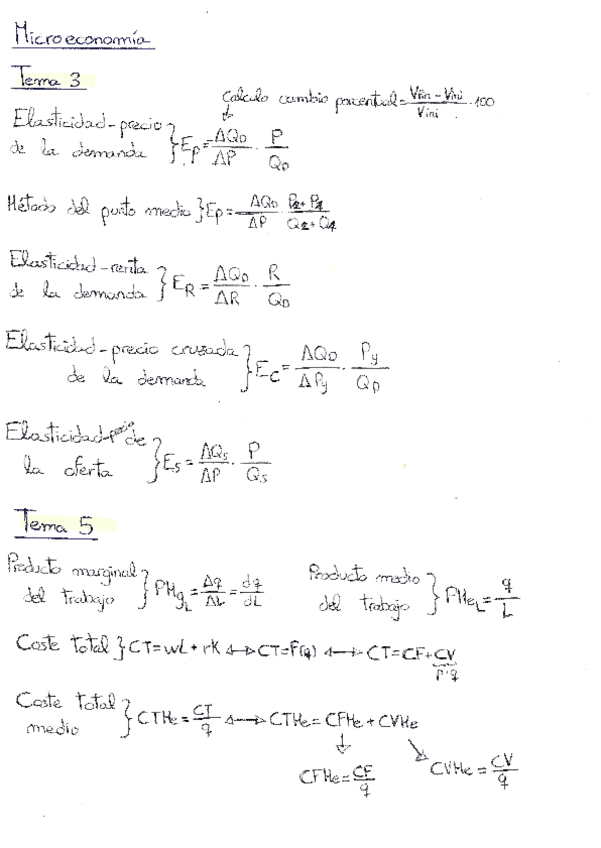 Microeconomía
Tema 3
Calculo cambio porcentual = Vfin - Vini / Vini · 100
Elasticidad-precio de la demanda } Ep = ΔQD/ΔP · P/QD
Método del punto medio } Ep = ΔQD/ΔP · P2+P1/Q2+Q1
Elasticidad-renta de la demanda } ER = ΔQD/ΔR · R/QD
Elasticidad-precio cruzada de la demanda } EC = ΔQD/ΔPy · Py/QD
Elasticidad-precio de la oferta } ES = ΔQs/ΔP · P/Qs
Tema 5
Producto marginal del trabajo } PMgL = Δq/ΔL = dq/dL
Producto medio del trabajo } PMeL = q/L
Coste total } CT = wL + rK ↔ CT = F(q) ↔ CT = CF + CV
Coste total medio } CTMe = CT/q ↔ CTMe = CFMe + CVMe
CFMe = CF/q
CVMe = CV/q